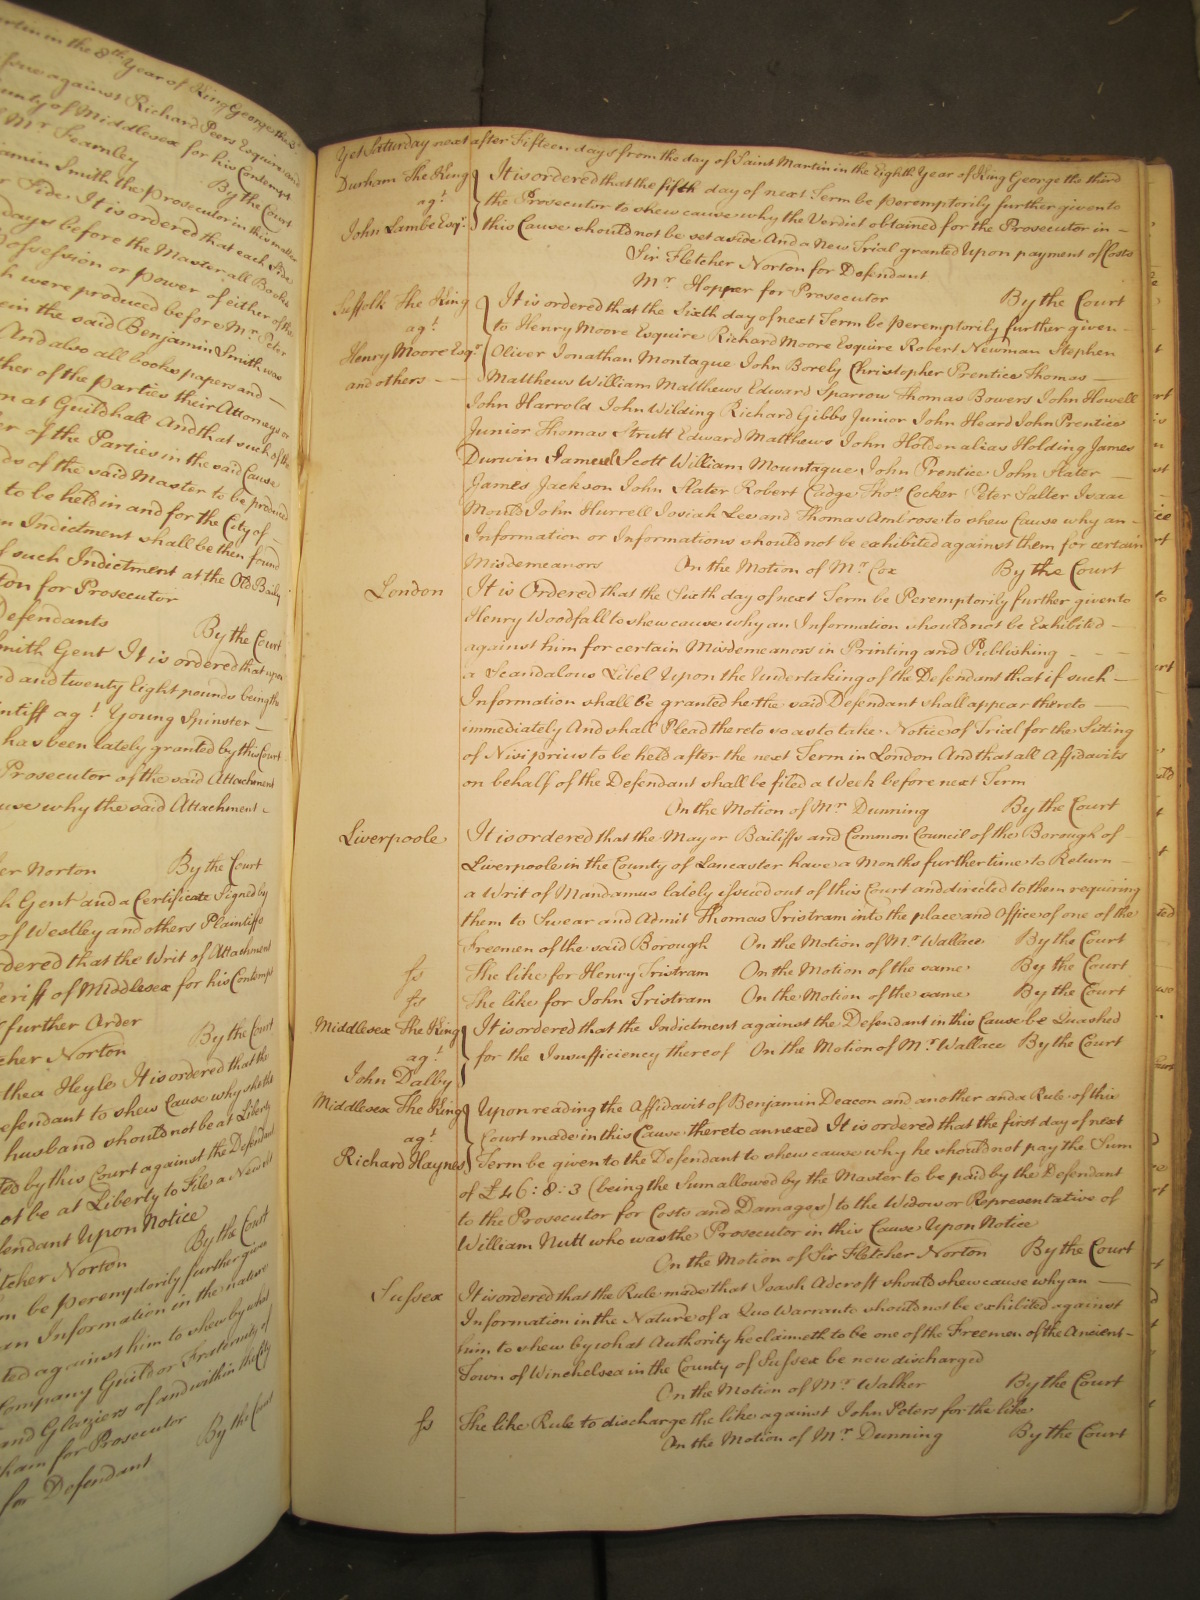 artin in the 8th Year of King George the 3d
against Richard Peers Esquire and
unty of Middlesex for his Contempt
Mr Fearnley By the Court
jamin Smith the Prosecutor in this matter
r Side. It is ordered that each Side
days before the Master all Books
Possession or power of either of the
h were produced before Mr Peter
ein the said Benjamin Smith was
And also all books papers and —
ther of the parties their Attorneys or
on at Guildhall And that such of the
er of the Parties in the said Cause
ds of the said Master to be produced
to be held in and for the City of —
n Indictment shall be then found
f such Indictment at the Old Baily
ton for Prosecutor
Defendants By the Court
mith Gent It is ordered that upon
d and twenty Eight pounds being the
intiff agt Young Spinster —
has been lately granted by this Court
Prosecutor of the said Attachment
use why the said Attachment
er Norton By the Court
h Gent and a Certificate Signed by
of Westley and others Plaintiffs
rdered that the Writ of Attachment
eriff of Middlesex for his Contempt
further Order By the Court
cher Norton
thea Heyles It is ordered that the
efendant to shew Cause why she the
husband should not be at Liberty
ted by this Court against the Defendant
ot be at Liberty to File a New
endant Upon Notice
tcher Norton By the Court
m be peremptorily further given
an Information in the nature
ted against him to shew by what
Company Guild or Fraternity of
and Glaziers of and within the City
ham for Prosecutor By the Court
for Defendant
Yet Saturday next after Fifteen days from the day of Saint Martin in the Eighth Year of King George the third
Durham The King It is ordered that the fifth day of next Term be peremptorily further given to
agt the Prosecutor to shew cause why the Verdict obtained for the Prosecutor in —
John Lambe Esqr. this Cause should not be set aside And a New Trial granted Upon payment of Costs
Sir Fletcher Norton for Defendant
Mr. Hopper for Prosecutor By the Court
Suffolk The King It is ordered that the Sixth day of next Term be peremptorily further given —
agt to Henry Moore Esquire Richard Moore Esquire Robert Newman Stephen
Henry Moore Esqr Oliver Jonathan Montague John Borely Christopher Prentice Thomas —
and others — Matthews William Matthews Edward Sparrow Thomas Bowers John Howell
John Harrold John Wilding Richard Gibbs Junior John Heard John Prentice
Junior Thomas Strutt Edward Matthews John Holden alias Holding James
Durwin Samuel Scott William Mountague John Prentice John Slater —
James Jackson John Slater Robert Cudge Thos Cocker Peter Salter Isaac
Mould John Hurrell Josiah Lee and Thomas Ambrose to shew Cause why an —
Information or Informations should not be exhibited against them for certain
Misdemeanors On the Motion of Mr Cox By the Court
London It is Ordered that the Sixth day of next Term be Peremptorily further given to
Henry Woodfall to shew cause why an Information should not be Exhibited —
against him for certain Misdemeanors in Printing and Publishing - - -
a Scandalous Libel Upon the Undertaking of the Defendant that if such —
Information shall be granted he the said Defendant shall appear thereto —
immediately And shall Plead thereto so as to take Notice of Trial for the Sitting
of Nisi prius to be held after the next Term in London And that all Affidavits
on behalf of the Defendant shall be filed a Week before next Term
On the Motion of Mr Dunning By the Court
Liverpoole It is ordered that the Mayor Bailiffs and Common Council of the Borough of —
Liverpoole in the County of Lancaster have a Months further time to Return —
a Writ of Mandamus lately issued out of this Court and directed to them requiring
them to Swear and Admit Thomas Tristram into the place and Office of one of the
Freemen of the said Borough On the Motion of Mr Wallace By the Court
ss The like for Henry Tristram On the Motion of the same By the Court
ss The like for John Tristram On the Motion of the same By the Court
Middlesex The King It is ordered that the Indictment against the Defendant in this Cause be Quashed
agt for the Insufficiency thereof On the Motion of Mr Wallace By the Court
John Dalby
Middlesex The King Upon reading the Affidavit of Benjamin Deacon and another and a Rule of this
agt Court made in this Cause thereto annexed It is ordered that the first day of next
Richard Haynes Term be given to the Defendant to shew cause why he should not pay the Sum
of £46:8:3 (being the Sum allowed by the Master to be paid by the Defendant
to the Prosecutor for Costs and Damages) to the Widow or Representative of
William Nutt who was the Prosecutor in this Cause Upon Notice
On the Motion of Sir Fletcher Norton By the Court
Sussex It is ordered that the Rule made that Isash Adcroft should shew cause why an —
Information in the Nature of a Quo Warranto should not be exhibited against
him to shew by what Authority he claimeth to be one of the Freemen of the Ancient —
Town of Winchelsea in the County of Sussex be now discharged
On the Motion of Mr Walker By the Court
ss The like Rule to discharge the like against John Peters for the like
On the Motion of Mr Dunning By the Court